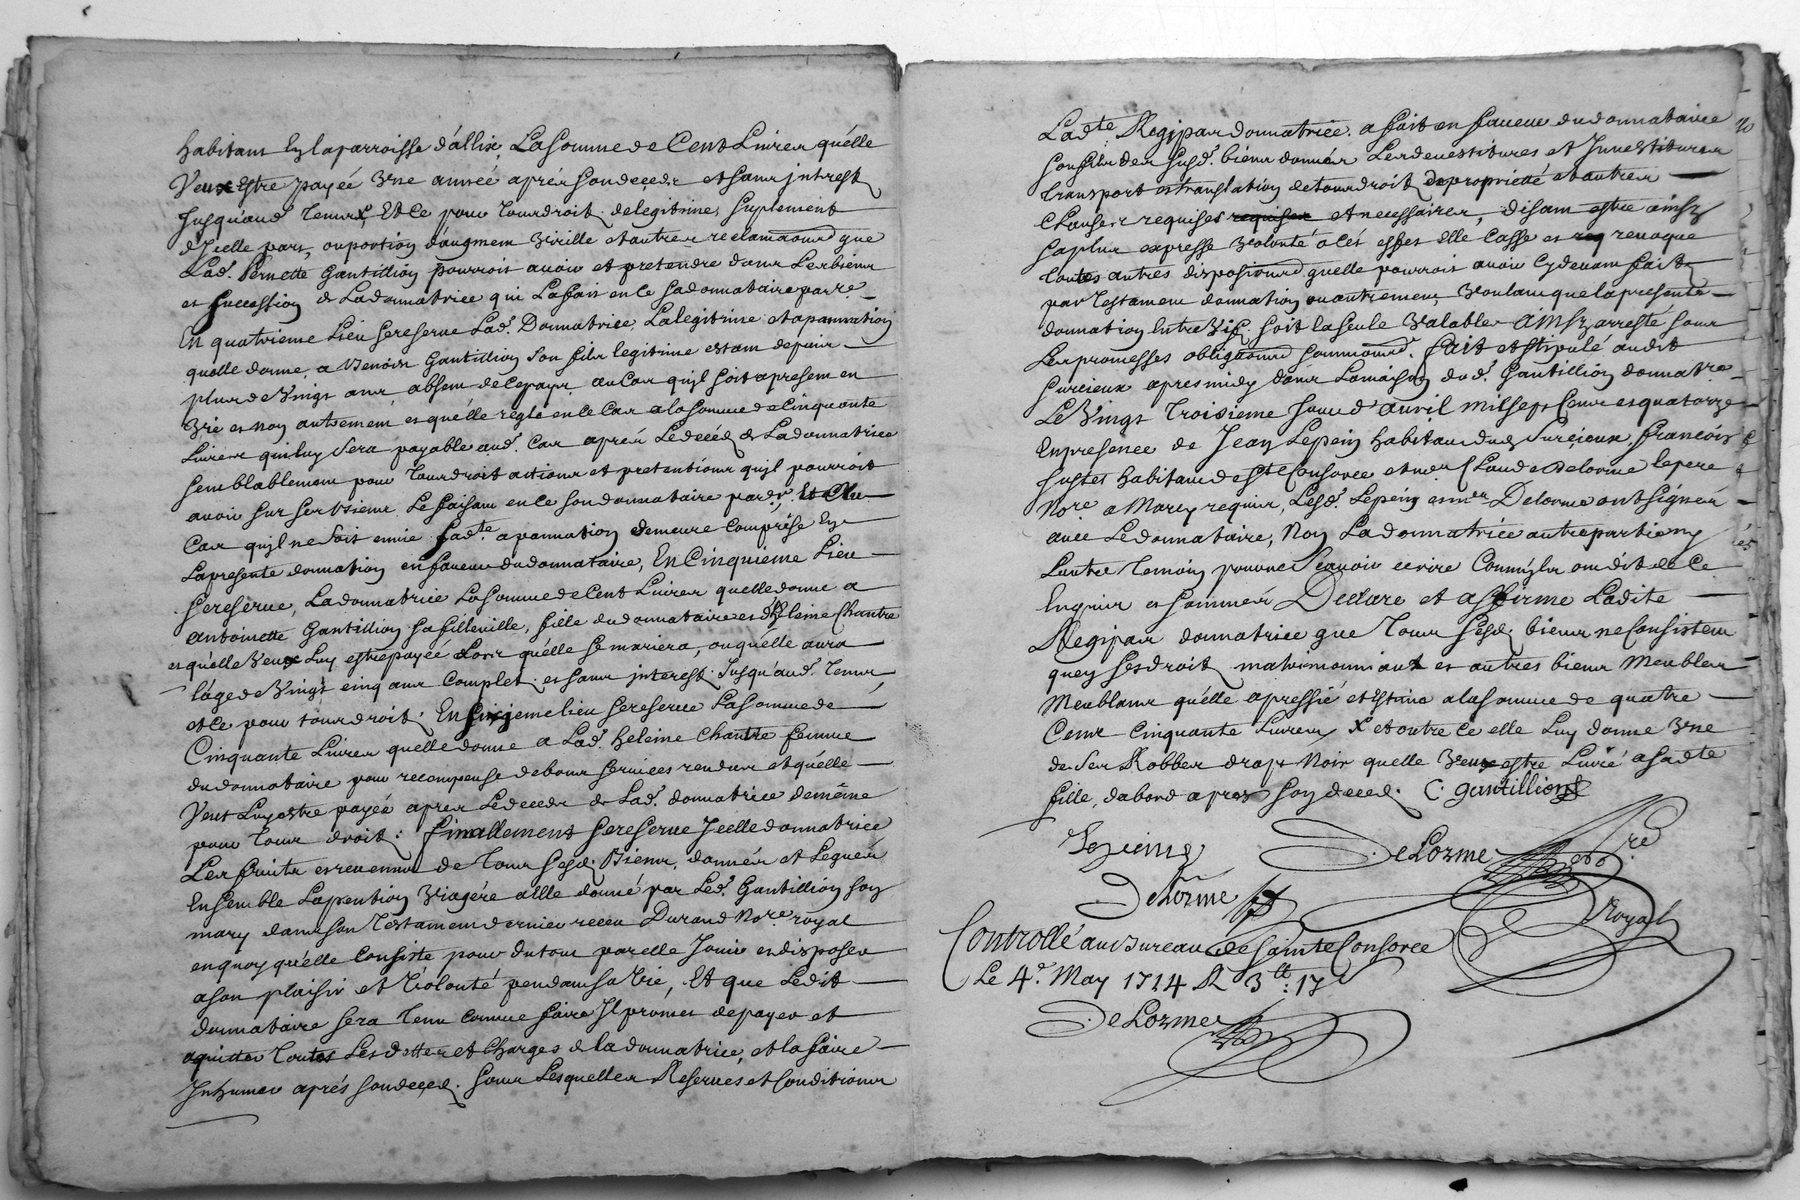 habitant En laparroisse d'allix, La somme de Cent Livres qu'elle
Veux Estre payéé Vne annéé aprés son deceds et sans jntrest
Jusquaud. temps, Et ce pour tous droit de legitime, suplement
d'Jcelle part, ou portion d'augment Virille et autres reclamaons que
Lad. Pernette Gantillion pourroit auoir et pretendre dans Les biens
et succession de La donnatrice qui La fait en ce sa donnataire par re
En quatrieme Lieu se reserue Lad. Donnatrice, La legitime et apannation
quelle donne, a Benoist Gantillion son fils legitime estant depuis
plus de Vingt ans, absent de ce pays, au Cas qu'jl soit apresent en
Vie et non autrement et qu'elle regle en ce Cas a la somme de Cinquante
Liures qui luy sera payable aud. Cas aprés Le décéd de La donnatrice
semblablement pour tous droit actions et pretentions qu'jl pourroit
auoir sur ses biens Le faisant en ce son donnataire par r, Et Au
Cas qu'jl ne soit en vie Lad.te apannation demeure Comprise En
La presente donnation en faueur du donnataire, En Cinquieme Lieu
se reserue, La donnatrice La somme de Cent Livres quelle donne a
antoinette Gantillion sa fillenille, fille du donnataire et d'heleine Chantre
et qu'elle Veux Luy estre payéé Lors qu'elle se mariera, ou qu'elle aura
l'âge de Vingt cinq ans Complet et sans interest Jusqu'aud. temps,
et ce pour tous droit. En sixjeme lieu se reserue La somme de
Cinquante Livres quelle donne a Lad. heleine Chantre femme
du donnataire pour recompense de bons seruices rendus et qu'elle
Veut Luy estre payéé apres Le deceds de Lad. donnatrice de même
pour tous droit: finallement se reserue Jcelle donnatrice
Les fruits et reuenus de tous sesd. Biens, donnés et Legués
Ensemble La pention Viagére a Elle donné par Led. Gantillion son
mary dans son testament dernier receu Durand No.re royal
en quoy qu'elle Consiste pour du tout par elle Jouir en disposer
a son plaisir et Volonté pendant sa Vie, Et que Ledit
donnataire sera tenu comme faire Il promet de payer et
aquiter toutes Les dettes et Charges de la donnatrice, et la faire
Jnhumer aprés son deced. sous Lesquelles Reserues et Conditions
Lad.te Regipas donnatrice a fait en faueur du donnataire
son fils des susd. biens donnés Les deuestitures et Jnuestitures
transport et translation de tous droit de proprieté et autres
Clauses requises requises et necessaires, disant estre ainsy
sa plus expresse Volonté a Cét effet Elle Casse et req reuoque
toutes autres disposions quelle pourroit auoir cy deuant fait
par testament donnation ou autrement, Voulant que la presente
donnation Entre Vif soit la seule Valable. Ainsy arresté sous
Les promesses obligaons soumions. fait et stipulé audit
Surcieux apres midy dans La maison dud. Gantillion donnatre
Le Vingt troisieme Jour d'auril mil sept Cent et quatorze
En presence de Jean Lepein habitant dud Surcieux, francois
Justet habitant de S.te Consorce et me Claude Delorme le pere
No.re a Marcy requis, Lesd. Lepein et me Delorme ont signéé
auec Le donnataire, Non La donnatrice autre partie ny
L'autre temoin pour ne sçauoir ecrire Comm'jls ont dit de ce
Enquis et sommés Declare et affirme Ladite
Regipas donnatrice que tous sesd. biens ne Consistent
qu'en ses droit matrimoniaux et autres biens Meubles
Meublans qu'elle apressié et Estimé a la somme de quatre
Cent Cinquante Livres X et outre Ce elle Luy donne Vne
de ses Robbes drap Noir quelle Veux estre Livré a sad.te
fille, dabord apres son deced. C. gantillion
Lepeing DeLorme No.re
Delorme Royal
Controllé au Bureau de Sainte Consorce
Le 4.e May 1714 R 3lt: 17
DeLorme